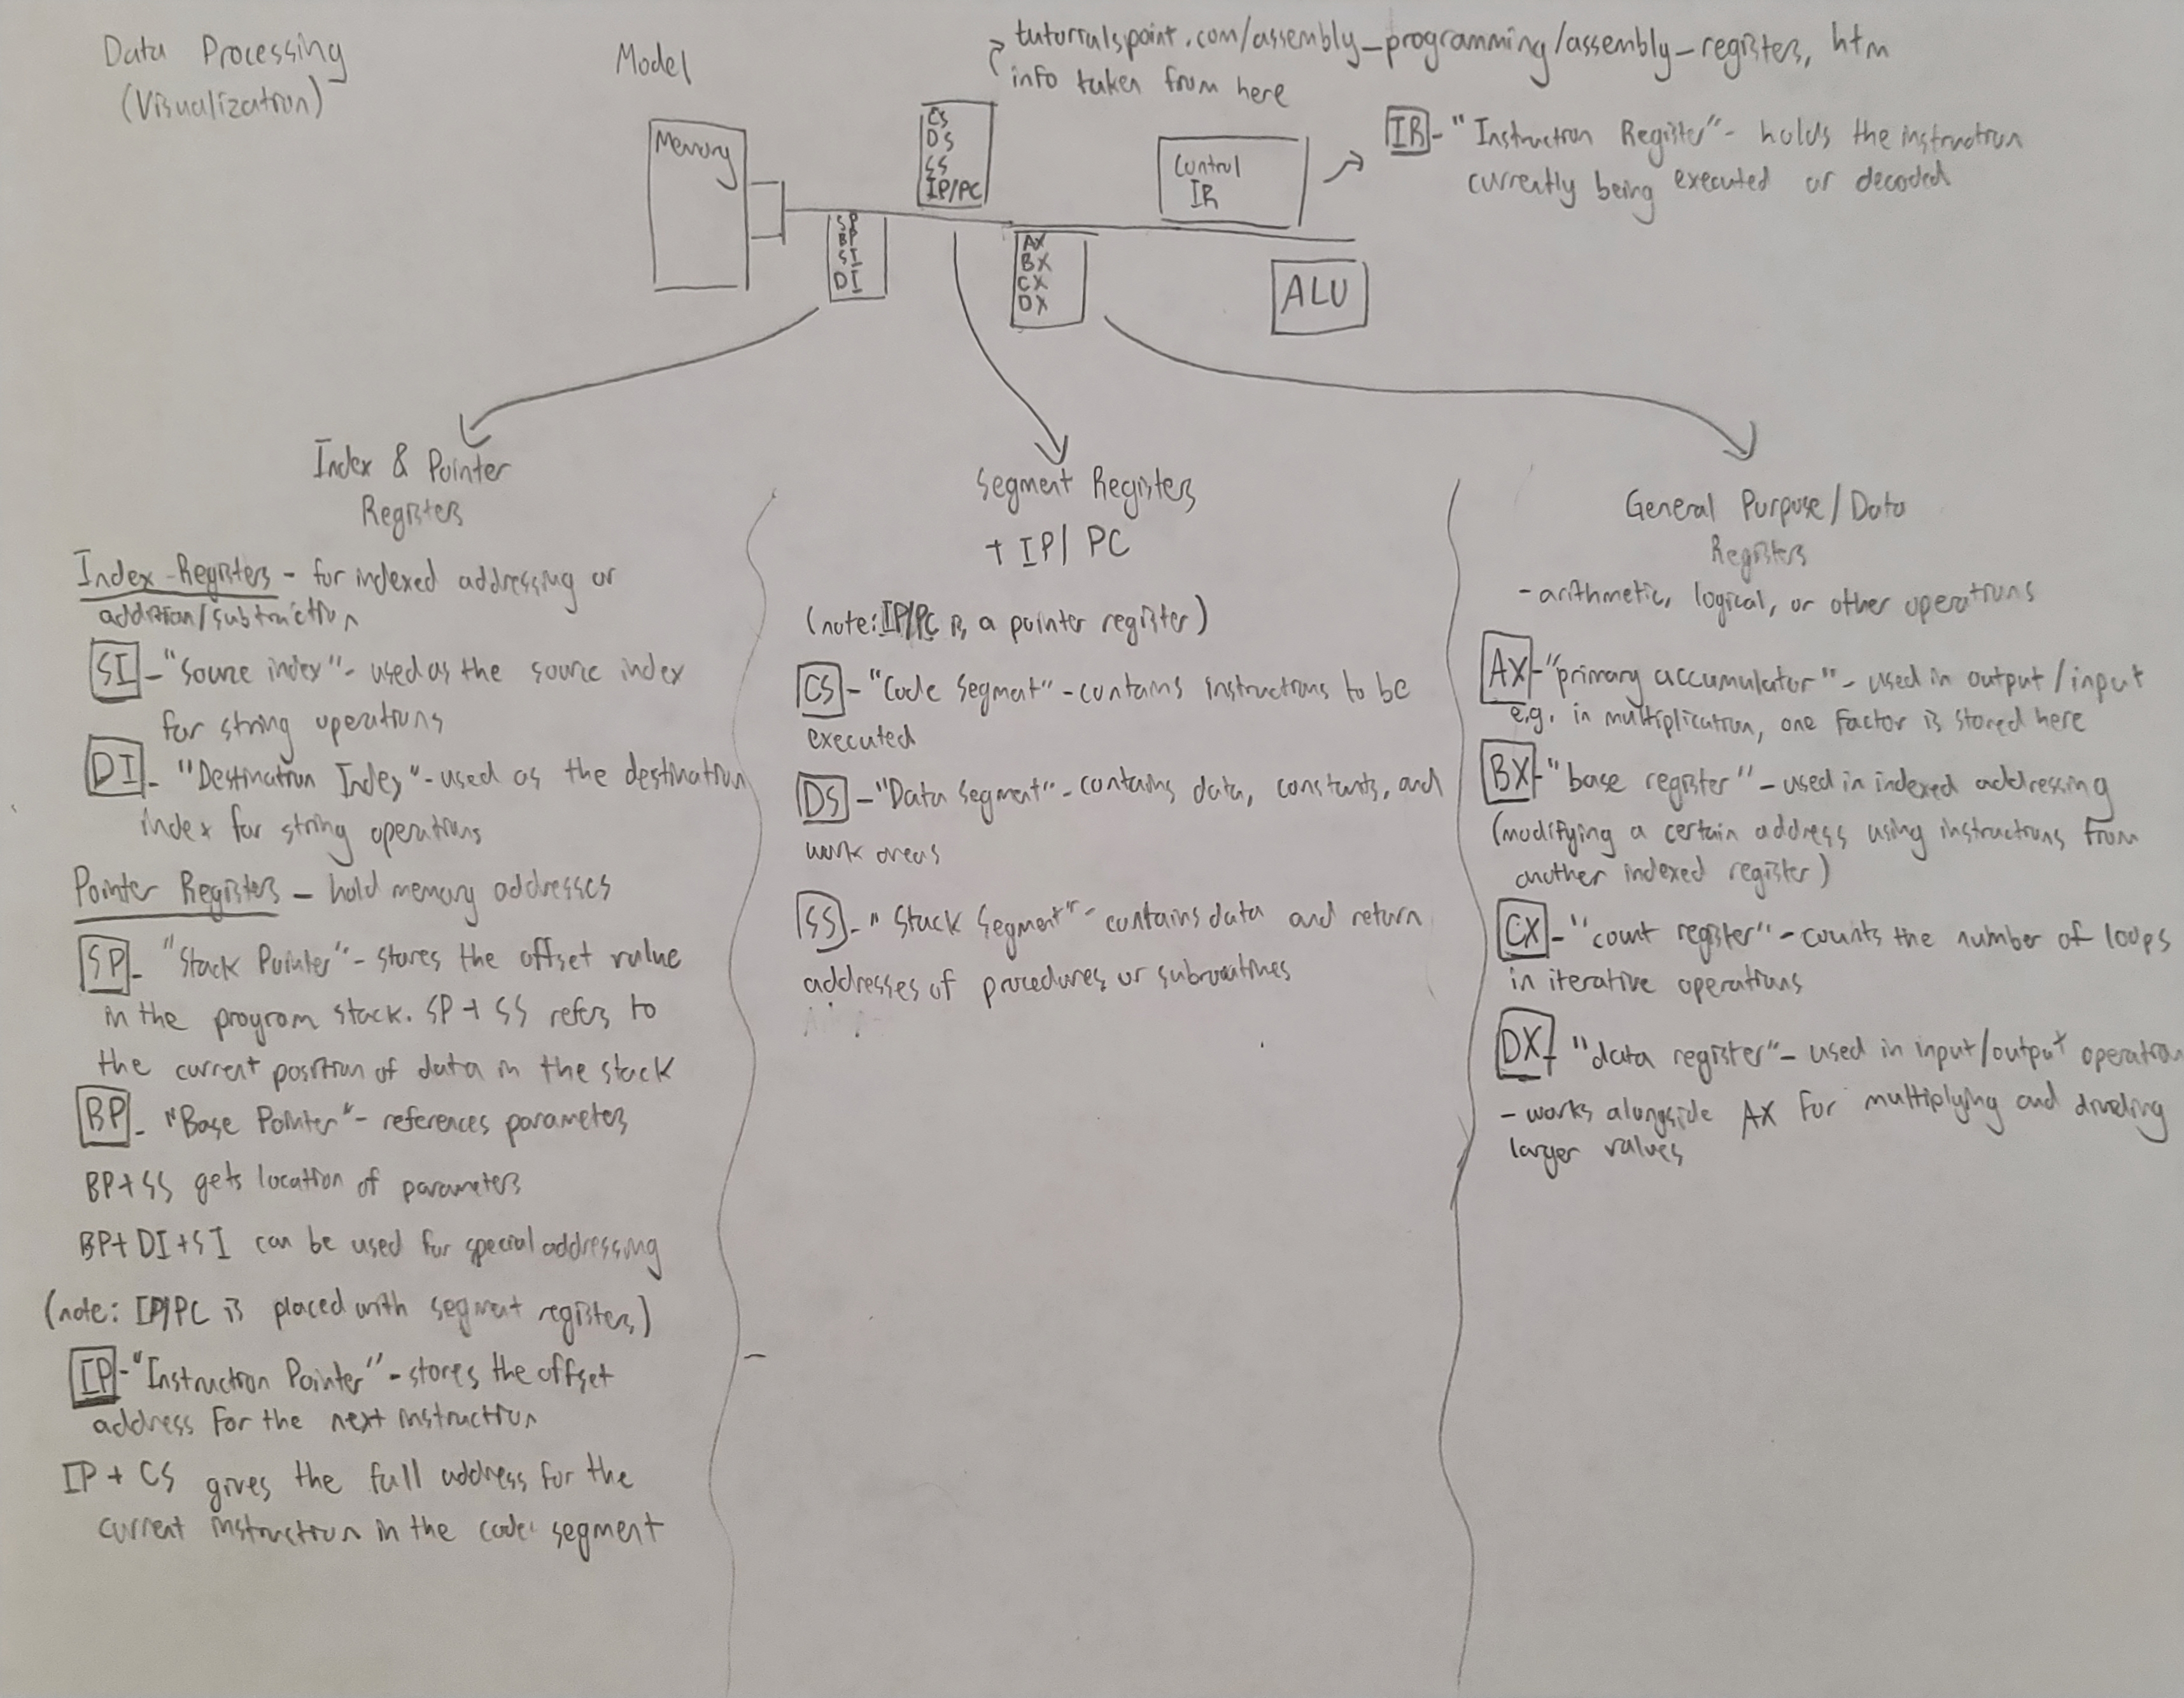 Data Processing
(Visualization)
Model
tutorialspoint.com/assembly_programming/assembly_registers, htm
info taken from here
Memory
CS
DS
SS
IP/PC
Control
IR
IR - "Instruction Register" - holds the instruction
currently being executed or decoded
SP
BP
SI
DI
AX
BX
CX
DX
ALU
Index & Pointer
Registers
Index Registers - for indexed addressing or
addition/subtraction
SI - "Source index" - used as the source index
for string operations
DI - "Destination Index" - used as the destination
index for string operations
Pointer Registers - hold memory addresses
SP - "Stack Pointer" - stores the offset value
in the program stack. SP + SS refers to
the current position of data in the stack
BP - "Base Pointer" - references parameters
BP+SS gets location of parameters
BP+DI+SI can be used for special addressing
(note: IP/PC is placed with segment registers)
IP - "Instruction Pointer" - stores the offset
address for the next instruction
IP + CS gives the full address for the
current instruction in the code segment
Segment Registers
+ IP/PC
(note: IP/PC is a pointer register)
CS - "Code Segment" - contains instructions to be
executed
DS - "Data Segment" - contains data, constants, and
work areas
SS - "Stack Segment" - contains data and return
addresses of procedures or subroutines
General Purpose/Data
Registers
- arithmetic, logical, or other operations
AX - "primary accumulator" - used in output/input
e.g. in multiplication, one factor is stored here
BX - "base register" - used in indexed addressing
(modifying a certain address using instructions from
another indexed register)
CX - "count register" - counts the number of loops
in iterative operations
DX - "data register" - used in input/output operation
- works alongside AX for multiplying and dividing
larger values